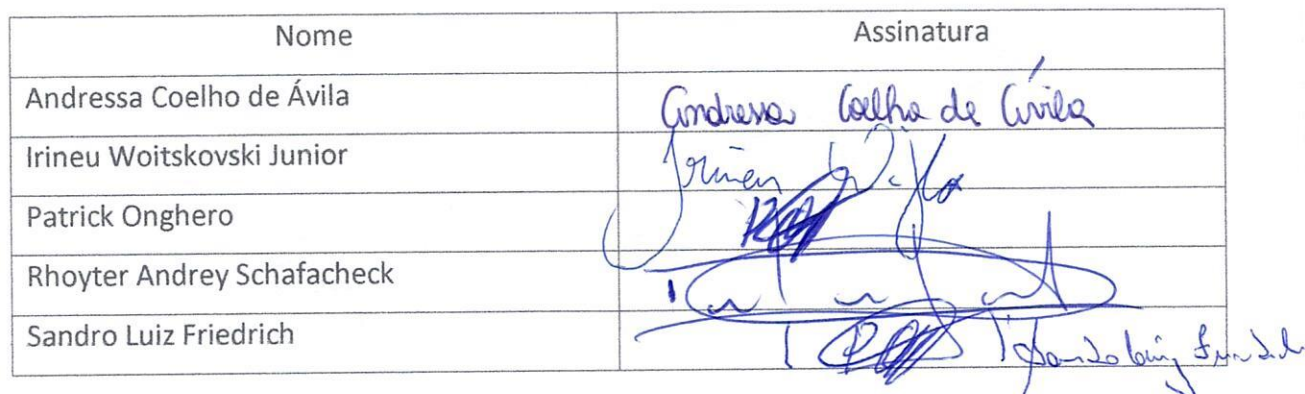 Nome Assinatura
Andressa Coelho de Ávila Andressa Coelho de Ávila
Irineu Woitskovski Junior Irineu
Patrick Onghero
Rhoyter Andrey Schafacheck
Sandro Luiz Friedrich Sandro Luiz